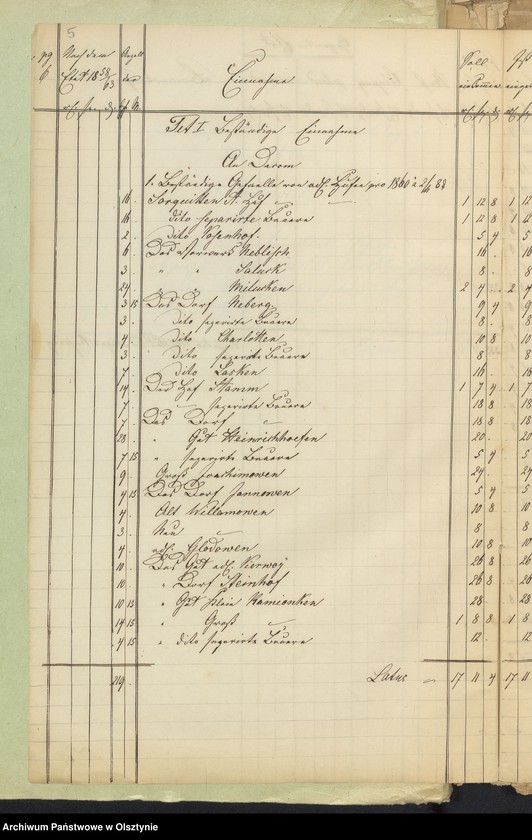 5
pg 6 Nach dem Etat 1858/63 Anzahl der Einnahme Soll einkommen
rℓ sgr d Hf M. rℓ sg d
Tit I Beständige Einnahme
An Decem
1. Beständige Gefaelle von adl. Hufen pro 1860 a 2/6 88
16. Sorquitten A. Hof 1 12 8 1 12
16 dito separirte Bauern 1 12 8 1 12
2. dito Rosenhof. 5 4 5
6. Das Vorwerk Neblisch 16. 16
3. " " Saluck 8. 8
24. Milucken 2 4. 2 4
3 15 Das Dorf Neberg 9 4 9
3. dito separirte Bauern 8. 8
4. dito Charlotten 10 8 10
3. dito separirte Bauern 8 8
7. dito Lasken 16. 18
14. Der Hof Stamm 1 7 4 1 7
7. separirte Bauern 18 8 18
7. Das Dorf 18 8 18
28. " Gut Heinrichhoefen 20. 20
7 15 " separirte Bauern 5 4 5
9. Groß Joachimowen 24 24
4 15 Das Dorf Jannowen 5 4 5
4. Alt Willamowen 10 8 10
3. Neu 8 8
4. adl. Glodowen 10 8 10
10. Das Gut adl. Kerwog 26 8 26
10. " Dorf Steinhof 26 8 26
10 15 " Gut Klein Kamionken 28 28
14 15 " Groß 1 8 8 1 8
4 15 " dito separirte Bauern 12. 12
219. Latus 17 11 4 17 11
Archiwum Państwowe w Olsztynie